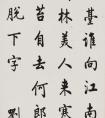 臺誰向江南
林美人來寒
苔自去何郎
脫下字 劉